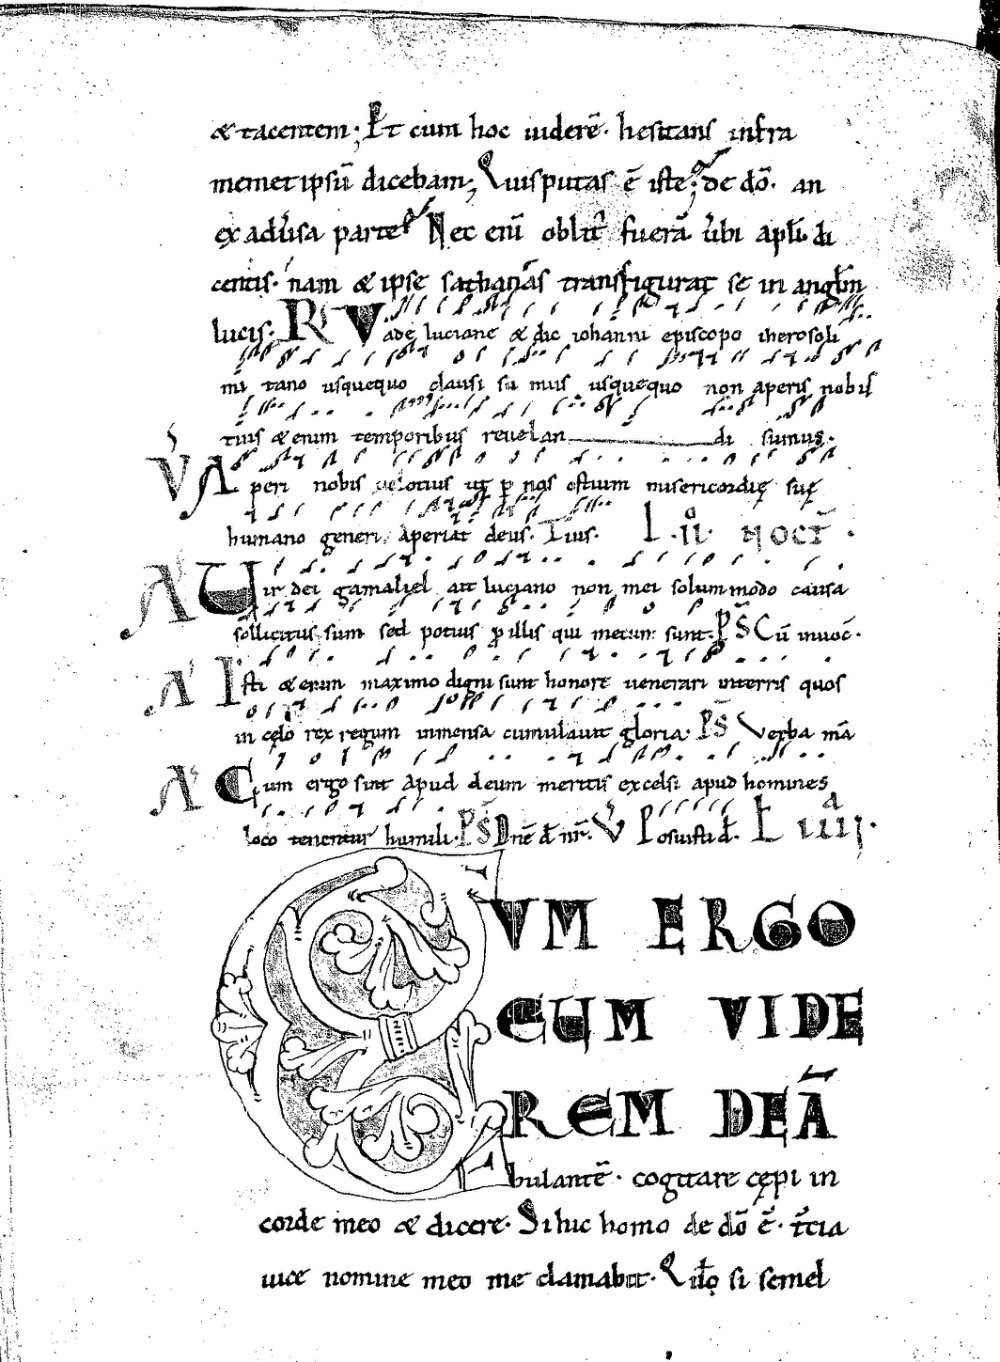 & tacentem; Et cum hoc uiderē. hesitans infra
memet ipsū dicebam; Quis putas ē iste; de dō. an
ex aduersa parte? Nec eni oblit᷒ fuerā ubi apl̄i di
centis. nam & ipse sathanas transfigurat se in angl̄m
lucis. R Vade luciane & dic iohanni episcopo iherosoli
mi tano usquequo clausi su mus usquequo non aperis nobis
tuis & enim temporibus reuelan di sumus.
V Aperi nobis uelotius ut p nos ostium misericordię suę
humano generi aperiat deus. Tuis. I .ıı. NOCT̄.
A Uir dei gamaliel ait luciano non mei solummodo causa
sollicitus sum sed potius p illis qui mecum sunt. PS̄ Cū inuoc̄.
A Isti & enim maximo digni sunt honore uenerari interris quos
in celo rex regum inmensa cumulauit gloria. PS̄ Verba mā
A Cum ergo sint apud deum meritis excelsi apud homines
loco tenentur humili. PS̄ Dn̄e d̄ nr̄. V Posuisti d̄. L iiiia.
CUM ERGO
EUM VIDE
REM DEĀ
bulantē. cogitare cępi in
corde meo & dicere. Si hic homo de dō ē. t̄cia
uice nomine meo me clamabit. si semel